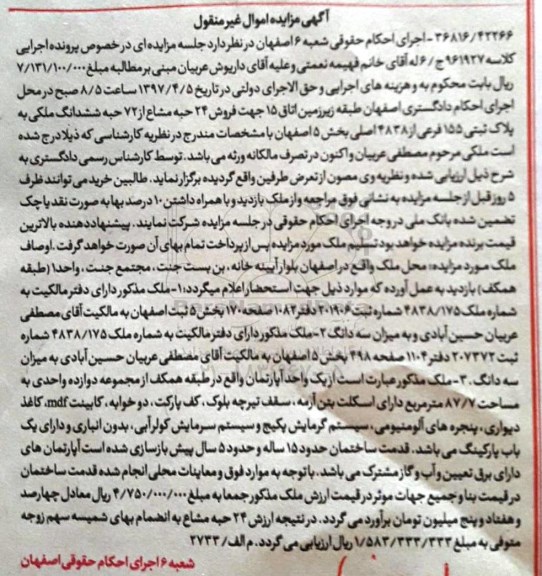 آگهی مزایده اموال غیر منقول
۳۶۸۱۶/۴۲۲۶۶ - اجرای احکام حقوقی شعبه ۶ اصفهان در نظر دارد جلسه مزایده ای در خصوص پرونده اجرایی
کلاسه ۹۶۱۹۲۷ ج/۶ له آقای خانم فهیمه نعمتی و علیه آقای داریوش عربیان مبنی بر مطالبه مبلغ ۷/۱۳۱/۱۰۰/۰۰۰
ریال بابت محکوم به و هزینه های اجرایی و حق الاجرای دولتی در تاریخ ۱۳۹۷/۴/۵ ساعت ۸/۵ صبح در محل
اجرای احکام دادگستری اصفهان طبقه زیرزمین اتاق ۱۵ جهت فروش ۲۴ حبه مشاع از ۷۲ حبه ششدانگ ملکی به
پلاک ثبتی ۱۵۵ فرعی از ۴۸۳۸ اصلی بخش ۵ اصفهان با مشخصات مندرج در نظریه کارشناسی که ذیلا درج شده
است ملکی مرحوم مصطفی عربیان و اکنون در تصرف مالکانه ورثه می باشد. توسط کارشناس رسمی دادگستری به
شرح ذیل ارزیابی شده و نظریه وی مصون از تعرض طرفین واقع گردیده برگزار نماید. طالبین خرید می توانند ظرف
۵ روز قبل از جلسه مزایده به نشانی فوق مراجعه و از ملک بازدید و با همراه داشتن ۱۰ درصد بها به صورت نقد یا چک
تضمین شده بانک ملی در وجه اجرای احکام حقوقی در جلسه مزایده شرکت نمایند. پیشنهاد دهنده بالاترین
قیمت برنده مزایده خواهد بود تسلیم ملک مورد مزایده پس از پرداخت تمام بهای آن صورت خواهد گرفت. اوصاف
ملک مورد مزایده: محل ملک واقع در اصفهان بلوار آیینه خانه، بن بست جنت، مجتمع جنت، واحد۱ (طبقه
همکف) بازدید به عمل آورده که موارد ذیل جهت استحضار اعلام میگردد: ۱-ملک مذکور دارای دفتر مالکیت به
شماره ملک ۴۸۳۸/۱۷۵ شماره ثبت ۲۰۱۹۰۶ دفتر ۱۰۸۲ صفحه ۱۷۰ بخش ۵ ثبت اصفهان به مالکیت آقای مصطفی
عربیان حسین آبادی و به میزان سه دانگ ۲-ملک مذکور دارای دفتر مالکیت به شماره ملک ۴۸۳۸/۱۷۵ شماره
ثبت ۲۰۷۳۷۲ دفتر ۱۱۰۴ صفحه ۴۹۸ بخش ۵ اصفهان به مالکیت آقای مصطفی عربیان حسین آبادی به میزان
سه دانگ. ۳-ملک مذکور عبارت است از یک واحد آپارتمان واقع در طبقه همکف از مجموعه دوازده واحدی به
مساحت ۸۷/۷ متر مربع دارای اسکلت بتن آرمه، سقف تیرچه بلوک، کف پارکت، دو خوابه، کابینت mdf، کاغذ
دیواری، پنجره های آلومنیومی، سیستم گرمایش پکیج و سیستم سرمایش کولر آبی، بدون انباری و دارای یک
باب پارکینگ می باشد. قدمت ساختمان حدود ۱۵ ساله و حدود ۵ سال پیش بازسازی شده است آپارتمان های
دارای برق تعیین و آب و گاز مشترک می باشد. با توجه به موارد فوق و معاینات محلی انجام شده قدمت ساختمان
در قیمت بنا و جمیع جهات موثر در قیمت ارزش ملک مذکور جمعا به مبلغ ۴/۷۵۰/۰۰۰/۰۰۰ ریال معادل چهارصد
و هفتاد و پنج میلیون تومان برآورد می گردد. در نتیجه ارزش ۲۴ حبه مشاع به انضمام بهای ثمینیه سهم زوجه
متوفی به مبلغ ۱/۵۸۳/۳۳۳/۳۳۳ ریال ارزیابی می گردد. م الف/ ۲۷۳۳
شعبه ۶ اجرای احکام حقوقی اصفهان